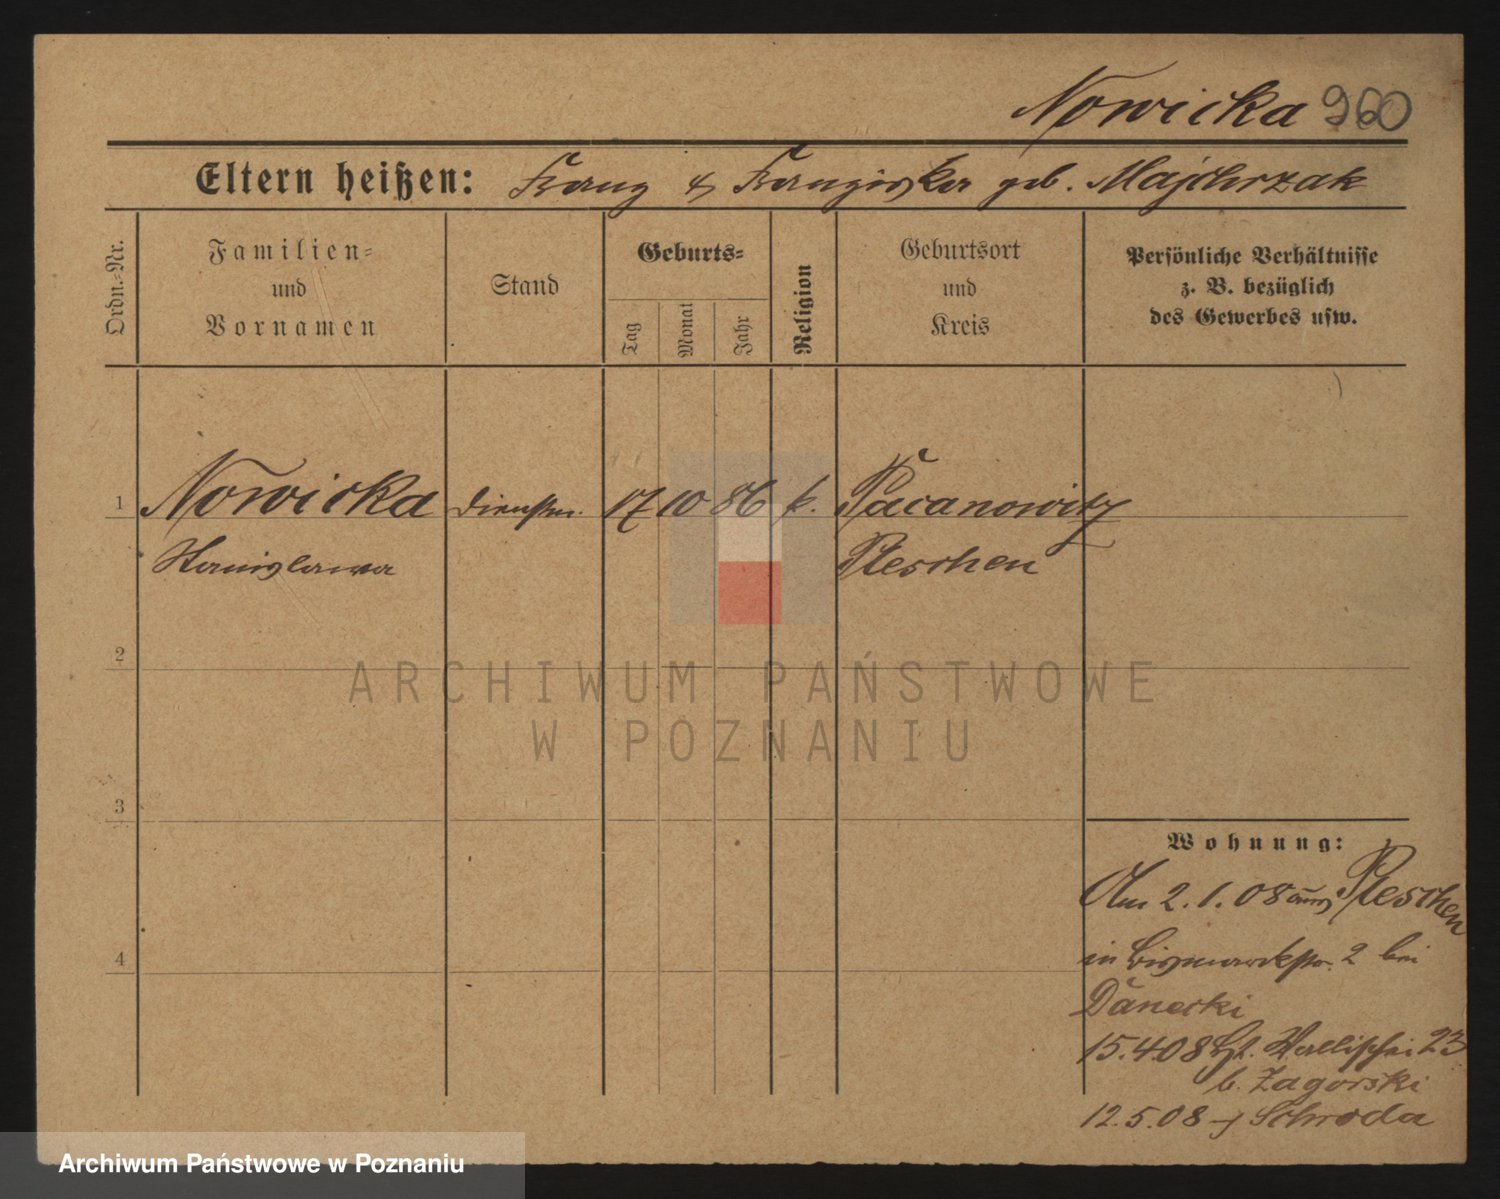 Nowicka 960
Eltern heißen: Franz & Franziska geb. Majchrzak
Ordn.-Nr.
Familien-
und
Vornamen
Stand
Geburts-
Tag
Monat
Jahr
Religion
Geburtsort
und
Kreis
Persönliche Verhältnisse
z. B. bezüglich
des Gewerbes usw.
1 Nowicka Dienstm. 17 10 86 k. Pacanowitz
Stanislawa Pleschen
2
ARCHIWUM PAŃSTWOWE
W POZNANIU
3
Wohnung:
Am 2.1.08 aus Pleschen
4
in Bismarckstr. 2 bei
Danecki
15.4.08 Wallischei 23
b. Zagorski
12.5.08 Schroda
Archiwum Państwowe w Poznaniu